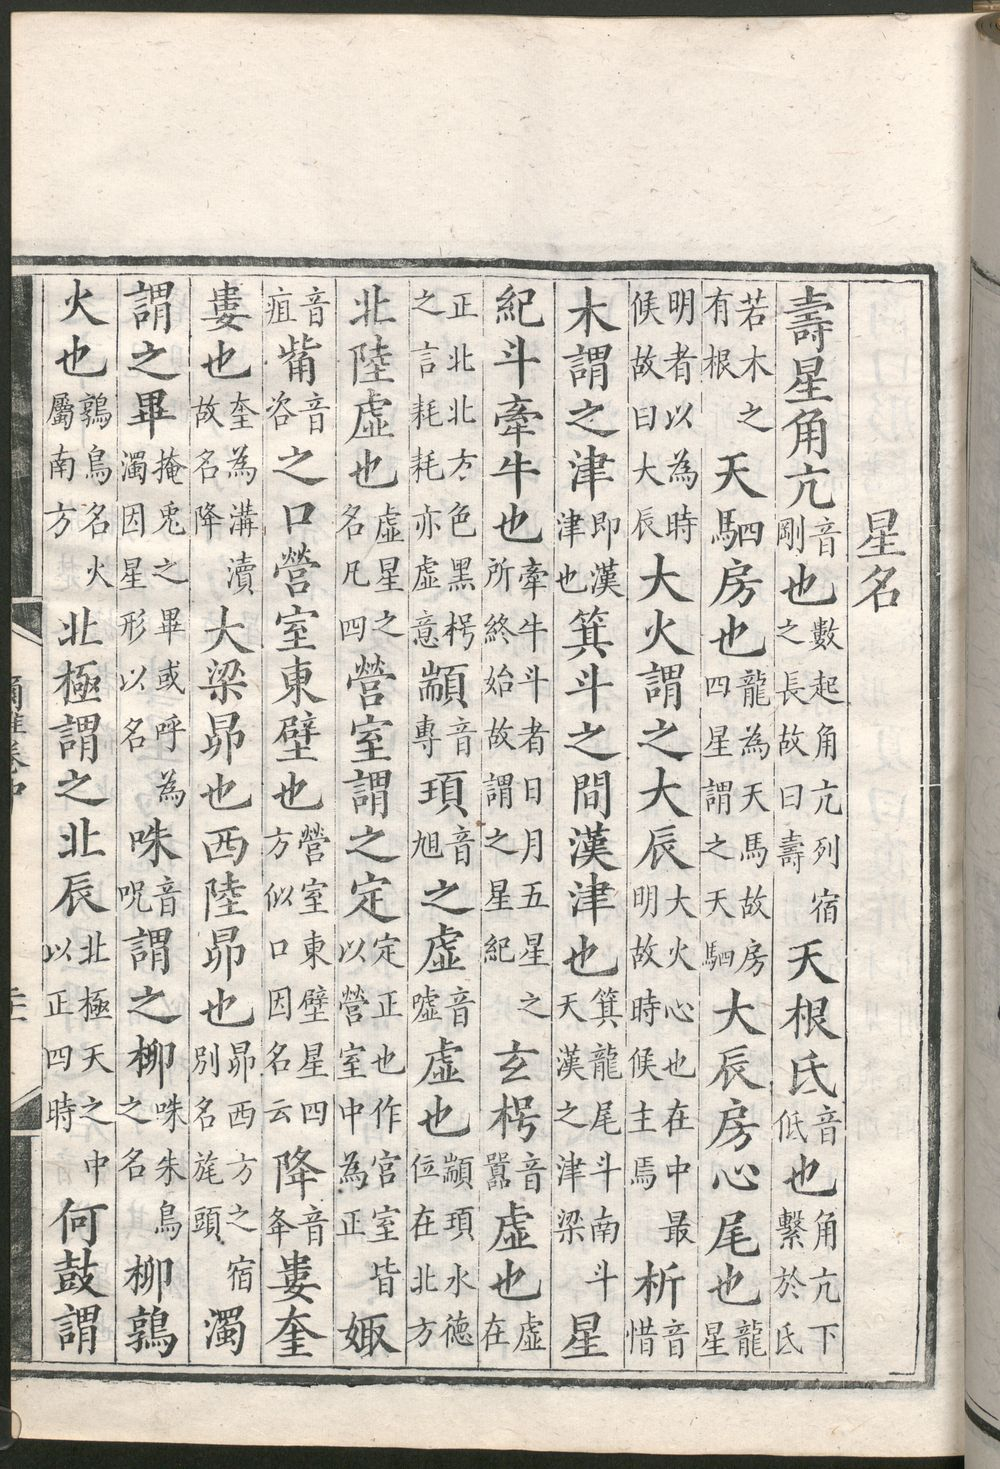 星名
壽星角亢音剛也數起角亢列宿之長故曰壽天根氐音低也角亢下繫於氐
若木之有根天駟房也龍為天馬故房四星謂之天駟大辰房心尾也龍星
明者以為時候故曰大辰大火謂之大辰大火心也在中最明故時候主焉析音惜
木謂之津即漢津也箕斗之間漢津也箕龍尾斗南斗天漢之津梁星
紀斗牽牛也牽牛斗者日月五星之所終始故謂之星紀玄枵音嚻虛也虛在
正北北方色黑枵之言耗耗亦虛意顓音專頊音旭之虛音噓虛也顓頊水德位在北方
北陸虛也虛星之名凡四營室謂之定定正也作宮室皆以營室中為正娵
音疽觜音咨之口營室東壁也營室東壁星四方似口因名云降音夅婁奎
婁也奎為溝瀆故名降大梁昴也西陸昴也昴西方之宿別名旄頭濁
謂之畢掩兎之畢或呼為濁因星形以名咮音呪謂之柳咮朱鳥之名柳鶉
火也鶉鳥名火屬南方北極謂之北辰北極天之中以正四時何鼓謂